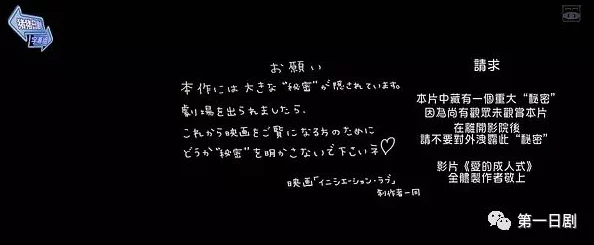 猪猪日剧
字幕组
お願い
本作には大きな“秘密”が隠されています。
劇場を出られましたら、
これから映画をご覧になる方のために
どうか“秘密”を明かさないで下さいネ♡
映画「イニシエーション・ラブ」
制作者一同
請求
本片中藏有一個重大“秘密”
因為尚有觀眾未觀賞本片
在離開影院後
請不要對外洩露此“秘密”
影片《愛的成人式》
全體製作者敬上
第一日剧